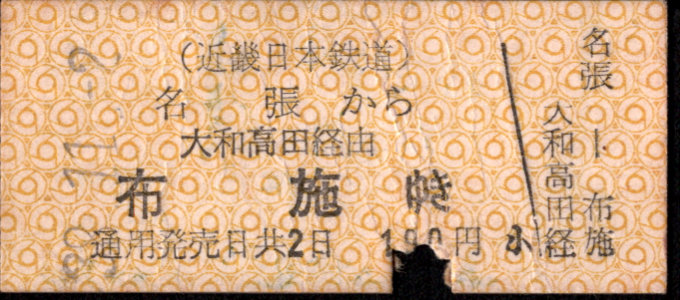 (近畿日本鉄道)
名張から
大和高田経由
布施ゆき
通用発売日共2日 190円 小
名張ー布施
大和高田経